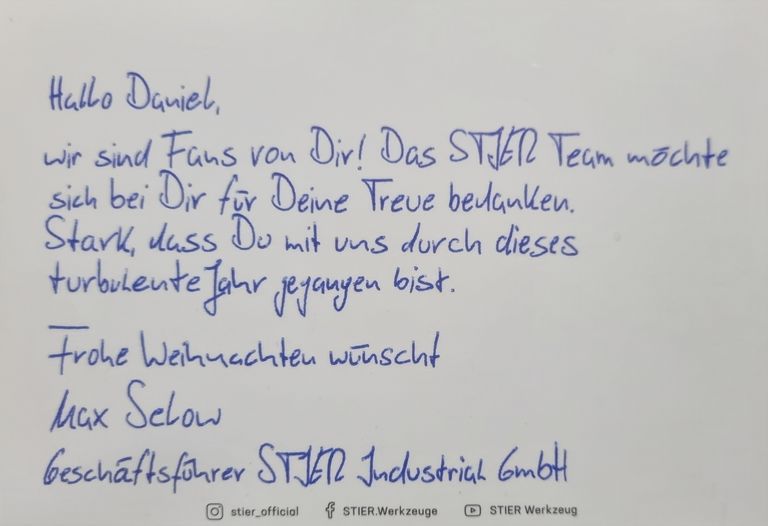 Hallo Daniel,
wir sind Fans von Dir! Das STIER Team möchte
sich bei Dir für Deine Treue bedanken.
Stark, dass Du mit uns durch dieses
turbulente Jahr gegangen bist.
Frohe Weihnachten wünscht
Max Selow
Geschäftsführer STIER Industrial GmbH
stier_official STIER.Werkzeuge STIER Werkzeug